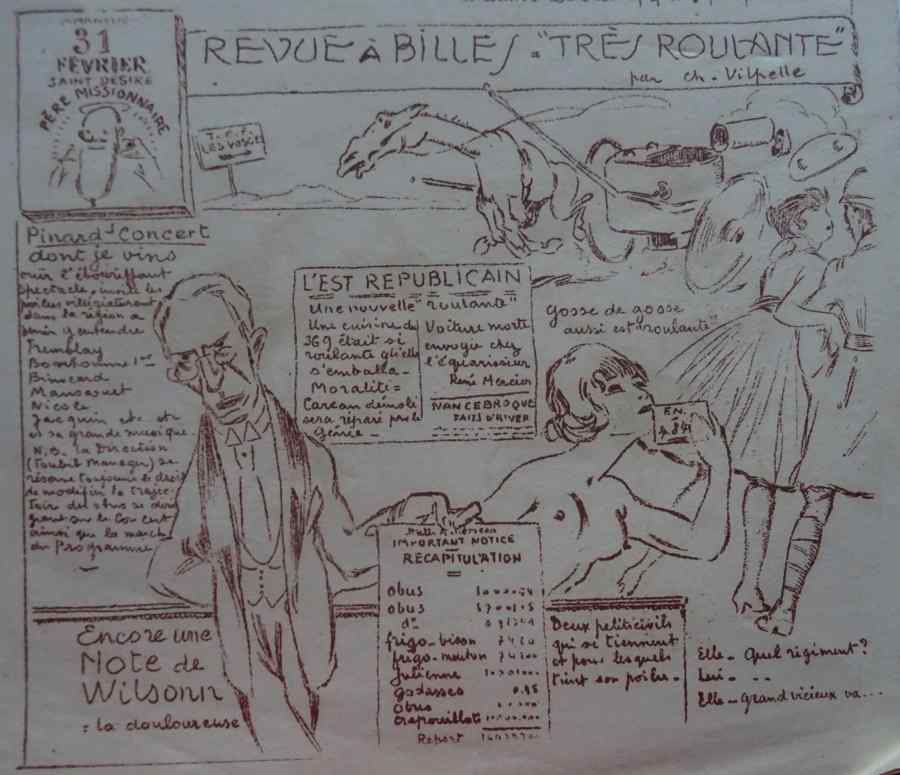 31
FÉVRIER
SAINT DÉSIRÉ
PÈRE MISSIONNAIRE
REVUE À BILLES = "TRÈS ROULANTE"
par Ch. Vilpelle
T.C.F.
LES VOSGES
Pinard-Concert
dont je vins
ouïr l'ébouriffant
spectacle, invite les
poilus villégiaturant
dans la région à
venir y entendre
Tremblay
Bonhomme 1er
Binocard
Mansaquet
Nicole
Jacquin etc etc
et sa grande musique
N.B. la Direction
(Toubib Manager) se
réserve toujours le droit
de modifier la trajec-
toire des obus se diri-
geant sur le Concert
ainsi que la marche
du Programme
L'EST REPUBLICAIN
Une nouvelle "roulante"
Une cuisine du
369 était si
roulante qu'elle
s'emballa -
Moralité =
Carcan démoli
sera réparé par le
Génie -
Voiture morte
envoyée chez
l'équarisseur
René Mercier
NANCEBROQUE
FAITS D'HIVER
Gosse de gosse
aussi est "roulante"
EN.
4841
IMPORTANT NOTICE
RECAPITULATION
obus
obus
do
frigo-bison
frigo-mouton
julienne
godasses 0.95
obus
crapouillots
Report
Encore une
Note de
Wilsonn
: la douloureuse
Deux petits civils
qui se tiennent
et pour lesquels
tient son poilu -
Elle - Quel régiment ?
Lui - . .
Elle - Grand vicieux va...